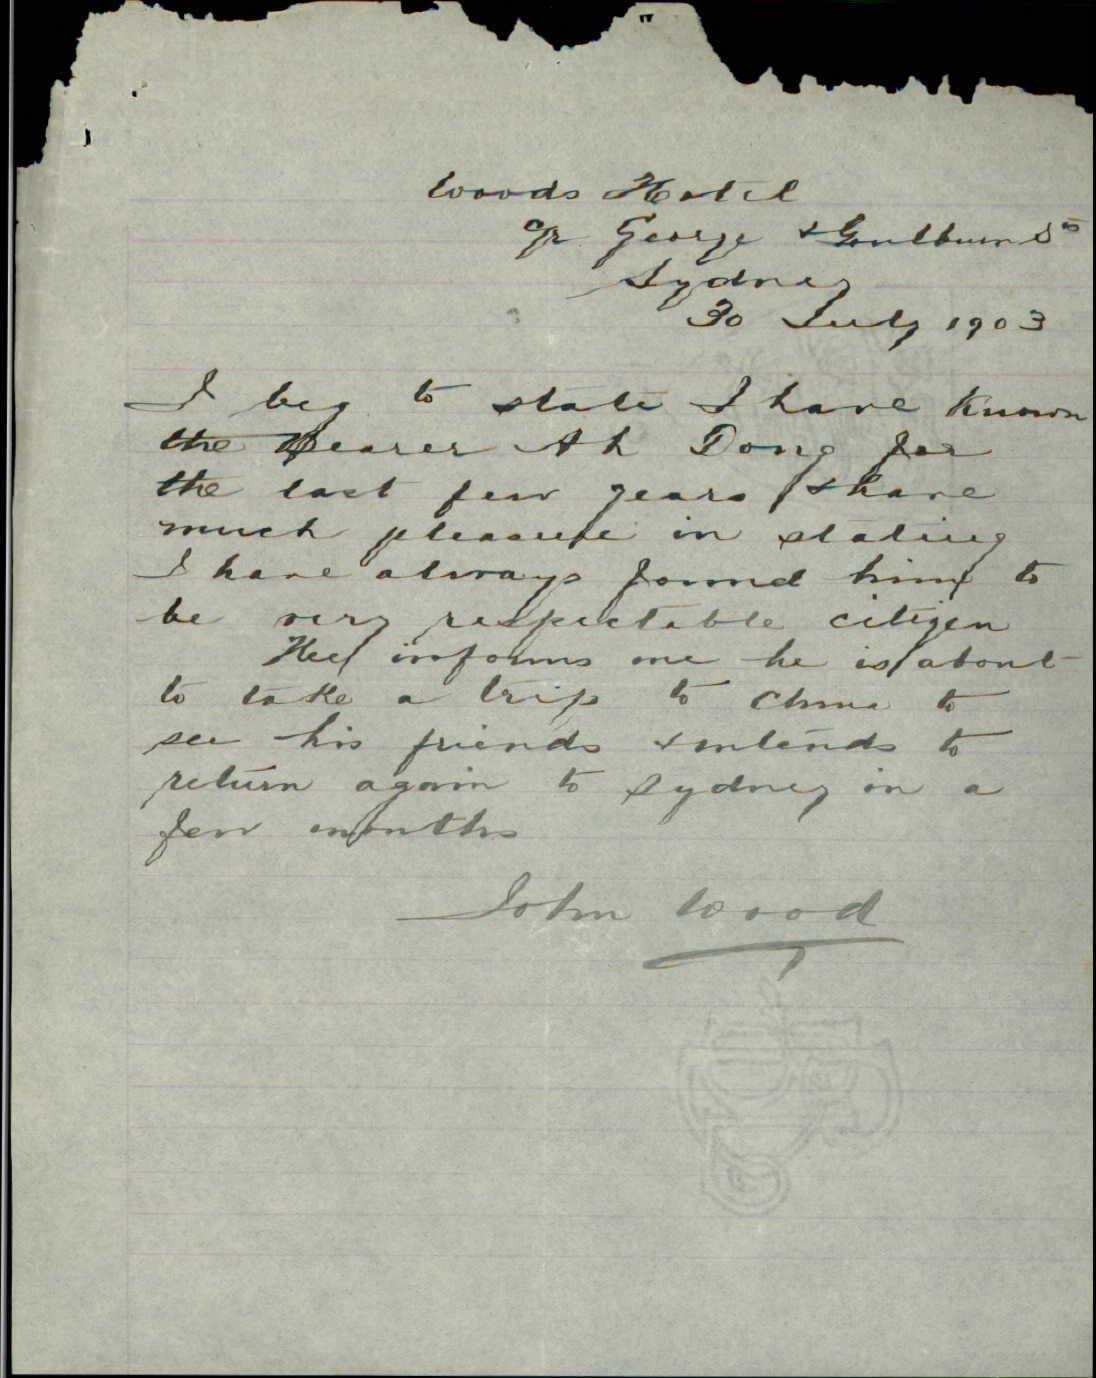 Woods Hotel
Cr George & Goulburn Sts
Sydney
30 July 1903
I beg to state I have known
the Bearer Ah Dong for
the last few years & have
much pleasure in stating
I have always found him to
be very respectable citizen
Hee informs me he is about
to take a trip to China to
see his friends & intends to
return again to Sydney in a
few months
John Wood